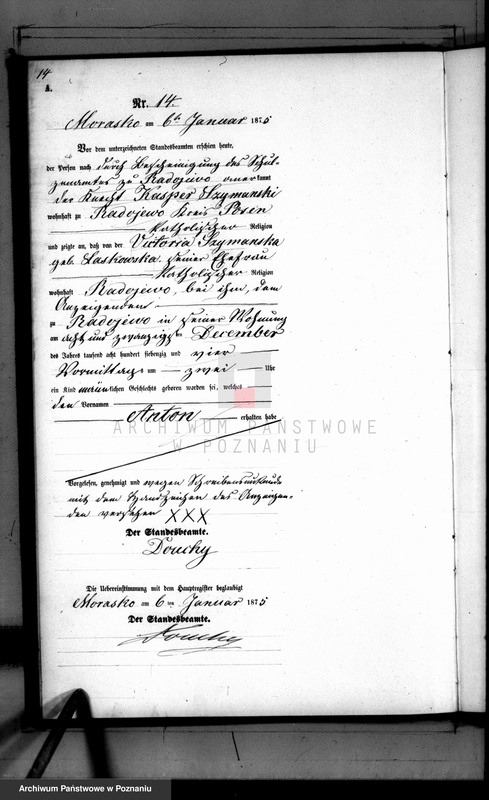 14
A.
Nr. 14.
Morasko am 6ten Januar 1875
Vor dem unterzeichneten Standesbeamten erschien heute,
der Person nach durch Bescheinigung des Schul-
zenamtes zu Radojewo anerkannt
der Knecht Kasper Szymanski
wohnhaft zu Radojewo Kreis Posen
katholischer Religion
und zeigte an, daß von der Victoria Szymanska
geb. Laskowska, seiner Ehefrau
katholischer Religion
wohnhaft Radojewo, bei ihm, dem
Anzeigenden
zu Radojewo in seiner Wohnung
am acht und zwanzigsten December
des Jahres tausend acht hundert siebenzig und vier
Vormittags um zwei Uhr
ein Kind männlichen Geschlechts geboren worden sei, welches
den Vornamen
Anton erhalten habe
ARCHIWUM PAŃSTWOWE
W POZNANIU
Vorgelesen, genehmigt und wegen Schreibensunkunde
mit dem Handzeichen des Anzeigen-
den versehen XXX
Der Standesbeamte.
Douchy
Die Uebereinstimmung mit dem Hauptregister beglaubigt
Morasko am 6 ten Januar 1875
Der Standesbeamte.
Douchy
Archiwum Państwowe w Poznaniu